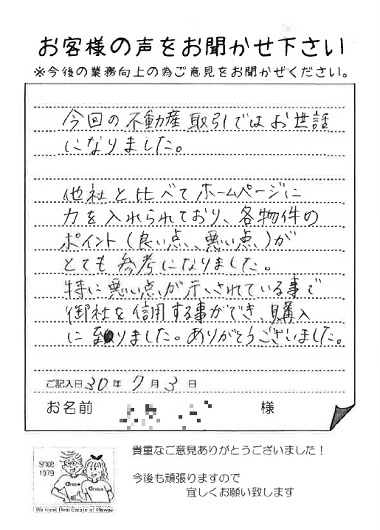 お客様の声をお聞かせ下さい
※今後の業務向上の為ご意見をお聞かせください。
今回の不動産取引ではお世話
になりました。
他社と比べてホームページに
力を入れられており、各物件の
ポイント(良い点、悪い点、)が
とても参考になりました。
特に悪い点が示されている事で
御社を信用する事ができ、購入
に至りました。ありがとうございました。
ご記入日30年7月3日
お名前 様
貴重なご意見ありがとうございました!
今後も頑張りますので
宜しくお願い致します
SINCE
1979